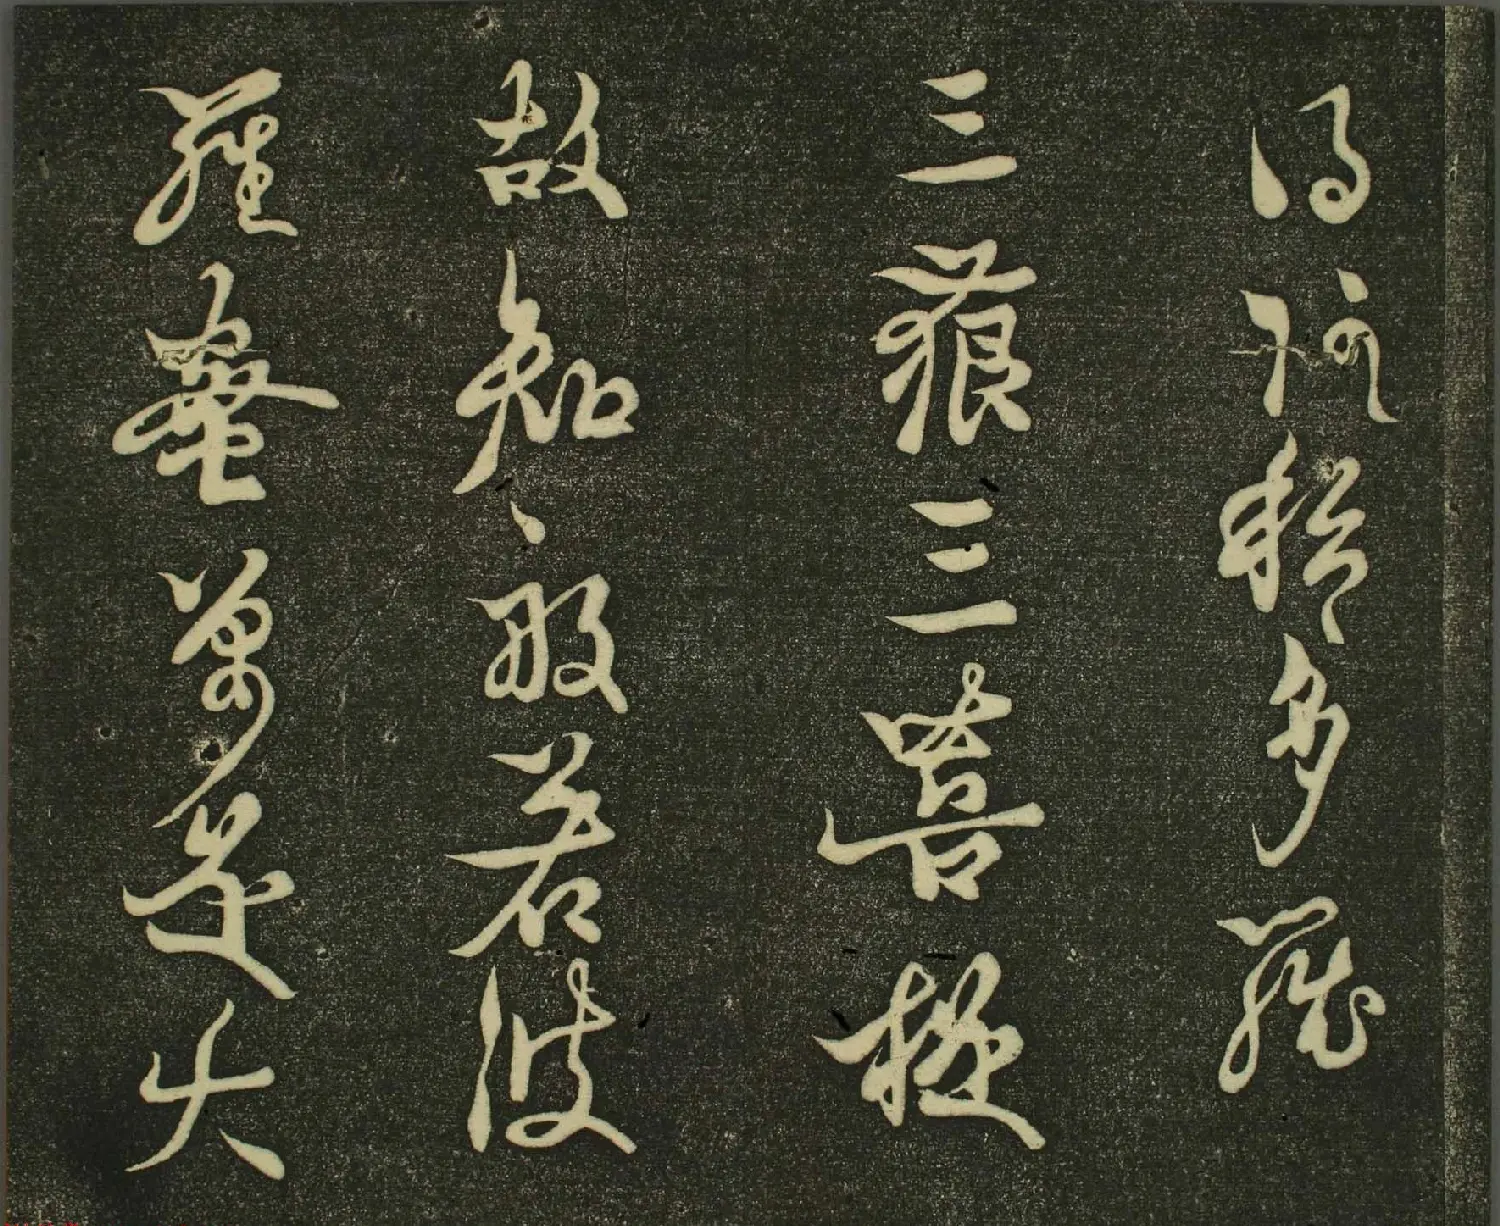 得阿耨多羅
三藐三菩提
故知般若波
羅蜜是大